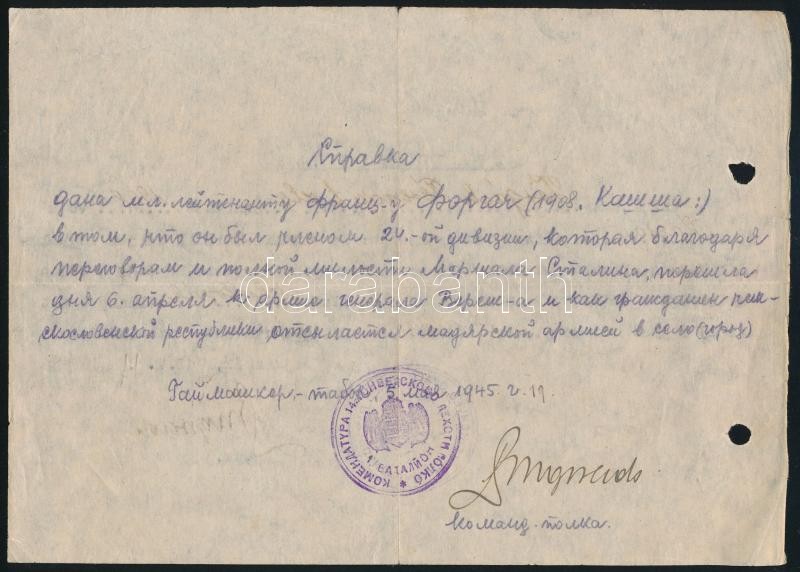 Справка
дана мл. лейтенанту Франц-у Форгач (1908. Кашша:)
в том, что он был членом 24.-ой дивизии, которая благодаря
переговорам и полной милости Маршала Сталина, перешла
дня 6. апреля к армие генерала Вереш-а и как гражданин чех-
скословенской республики отсылается мадярской армией в село (город)
Гаймашкер,-табор, 5 мая 1945. г.
КОМЕНДАТУРА 14. ХОНВЕДСКОВО ПЕХОТИ ПОЛКО *
БАТАЛИОН
команд. полка.
darabanth
www.darabanth.com